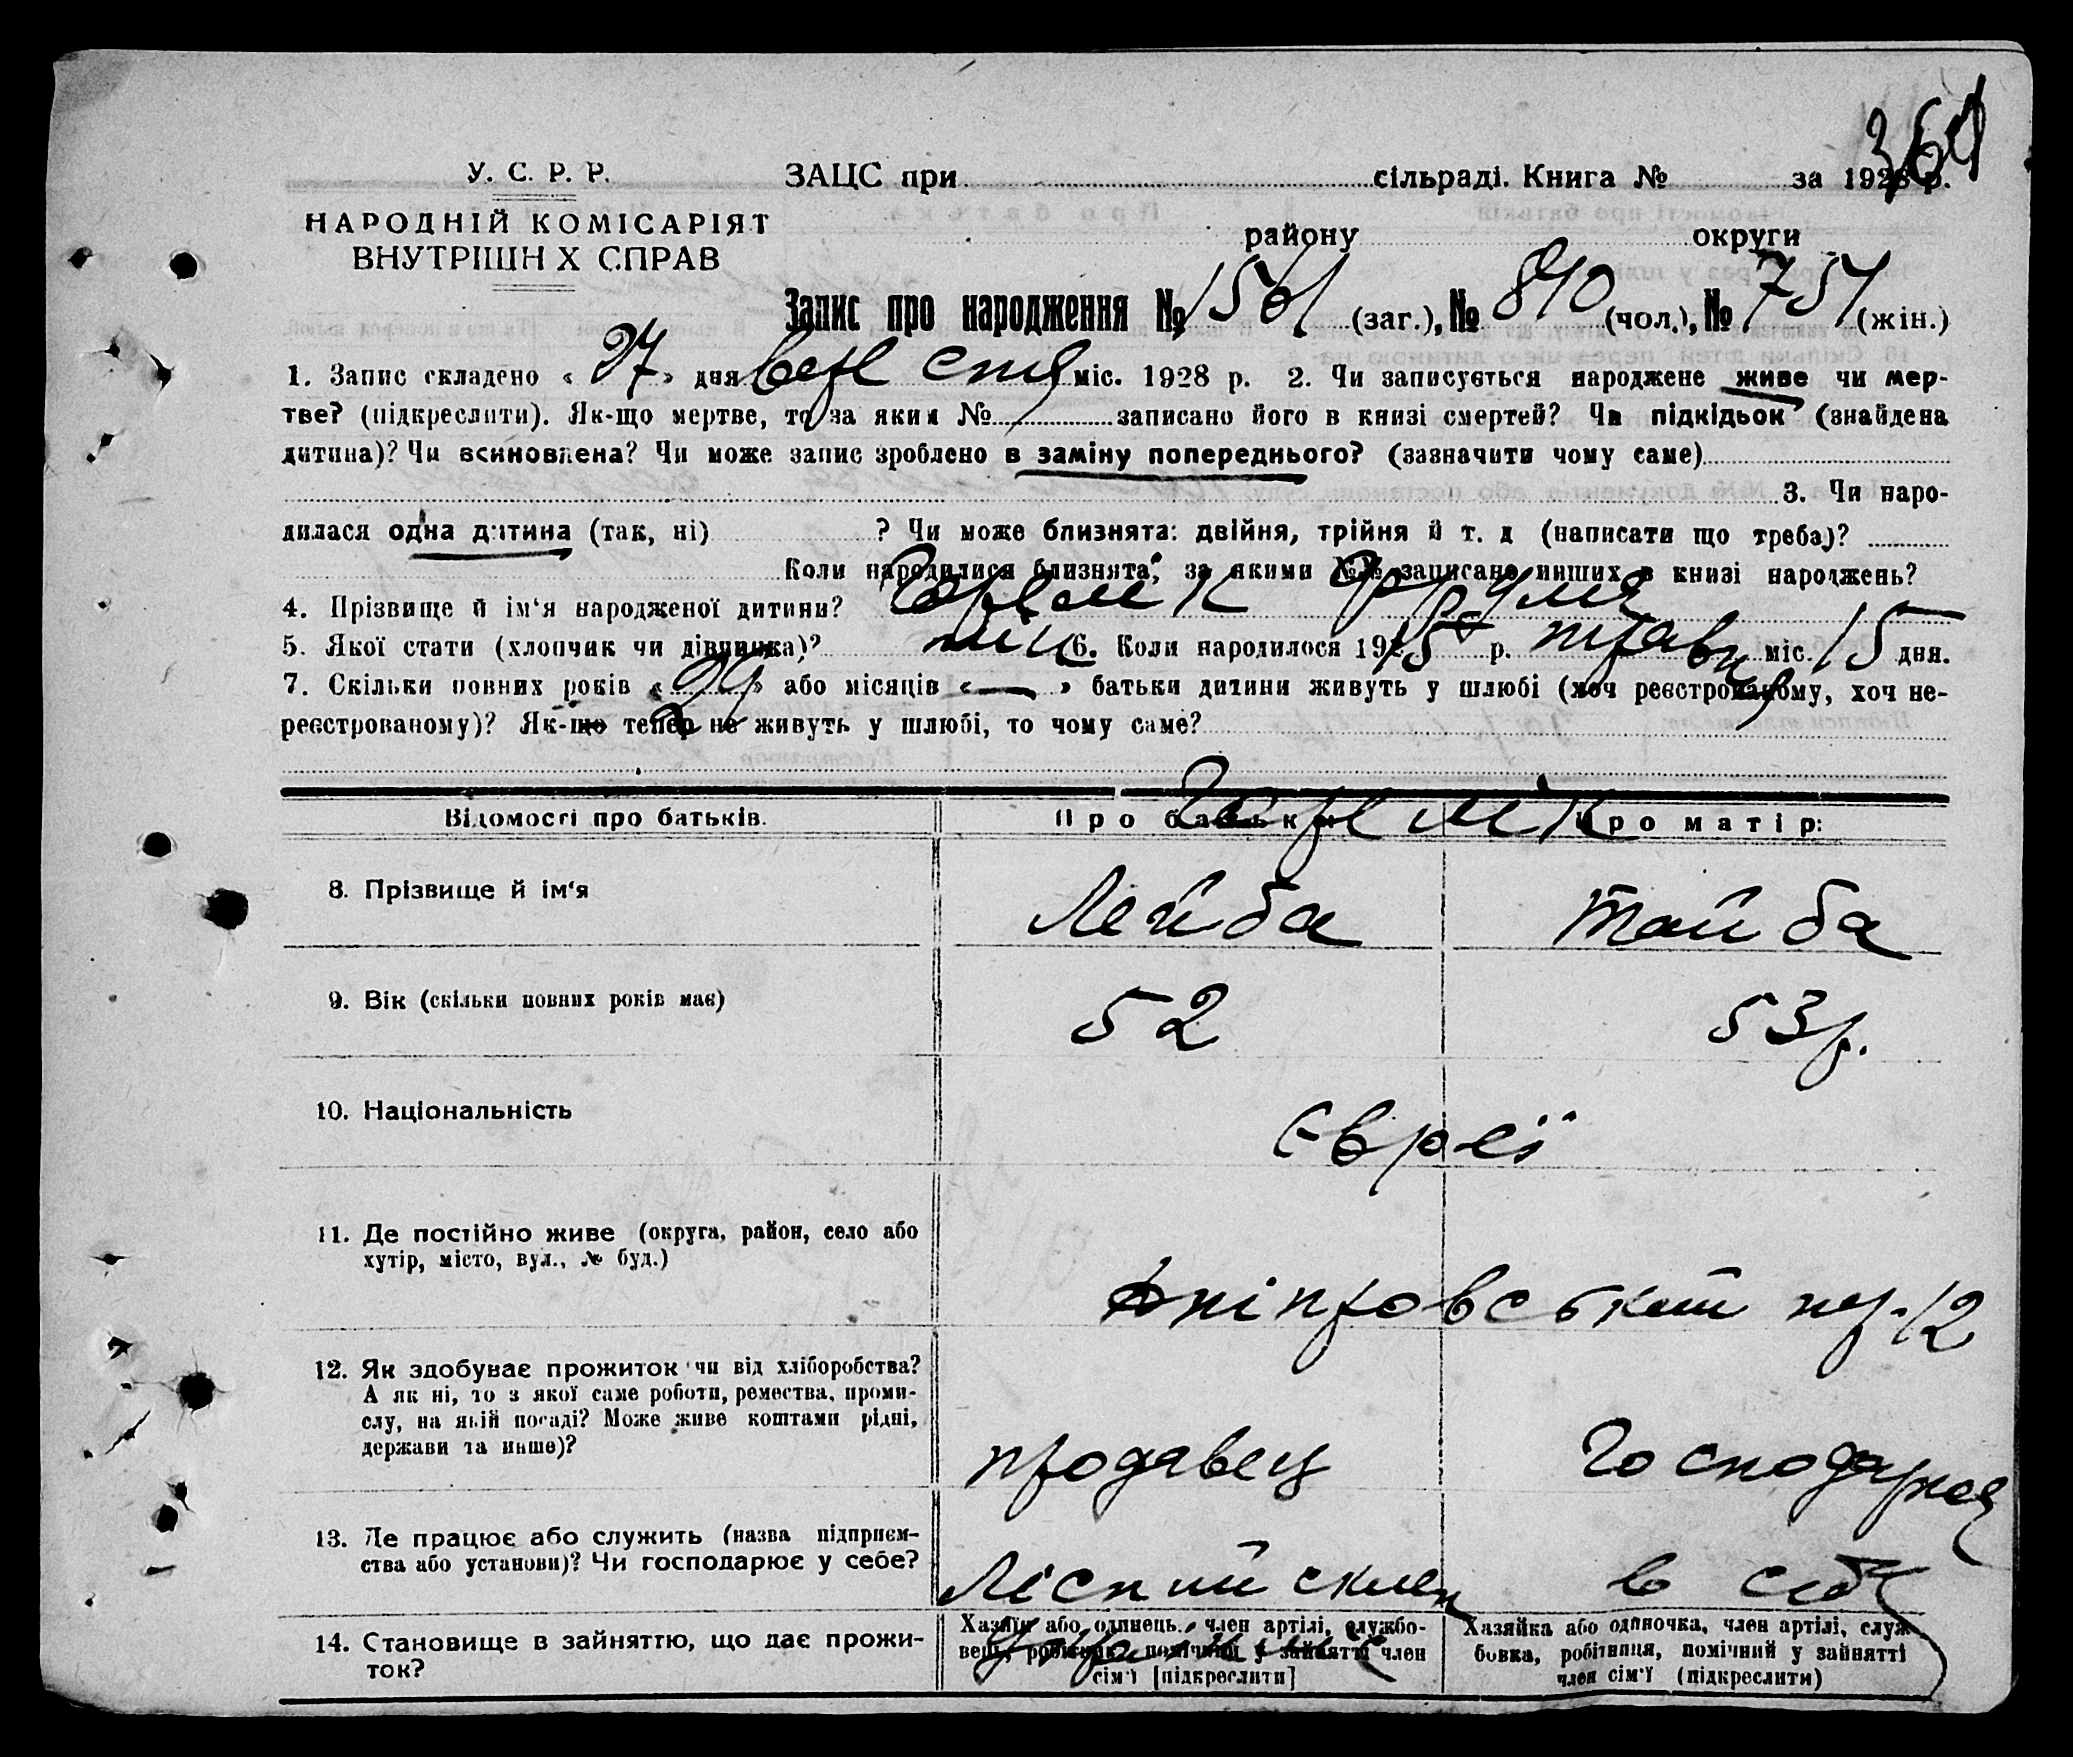 364
У. С. Р. Р.
ЗАЦС при сільраді. Книга № за 1928 р.
НАРОДНІЙ КОМІСАРІЯТ
району округи
ВНУТРІШН Х СПРАВ
Запис про народження № 1561 (заг.), № 810 (чол.), № 751 (жін.)
1. Запис складено « 27 » дня міс. 1928 р. 2. Чи записується народжене живе чи мер-
тве? (підкреслити). Як-що мертве, то за яким № записано його в книзі смертей? Чи підкідьок (знайдена
дитина)? Чи всиновлена? Чи може запис зроблено в заміну попереднього? (зазначити чому саме)
3. Чи наро-
дилася одна дитина (так, ні) ? Чи може близнята: двійня, трійня й т. д (написати що треба)?
Коли народилися близнята, за якими №№ записано инших в книзі народжень?
4. Прізвище й ім‘я народженої дитини?
5. Якої стати (хлопчик чи дівчинка)? 6. Коли народилося 19 р. травня міс. 15 дня.
7. Скільки повних років « 29 » або місяців « — » батьки дитини живуть у шлюбі (хоч реєстрованому, хоч не-
реєстрованому)? Як-що тепер не живуть у шлюбі, то чому саме?
Відомості про батьків. Про батька Про матір:
8. Прізвище й ім‘я Лейба Тайба
9. Вік (скільки повних років має) 52 53 р.
10. Національність Євреї
11. Де постійно живе (округа, район, село або
хутір, місто, вул., № буд.)
Дніпровський пр. 12
12. Як здобуває прожиток чи від хліборобства?
А як ні, то з якої саме роботи, ремества, проми-
слу, на якій посаді? Може живе коштами рідні,
держави та инше)?
продавец Господарка
13. Де працює або служить (назва підприєм-
ства або установи)? Чи господарює у себе?
Лісний склеп в себе
14. Становище в зайняттю, що дає прожи-
ток?
Хазяїн або одинець, член артілі, службо-
вець, робітник, помічний у зайнятті член
сім‘ї [підкреслити]
Хазяйка або одиночка, член артілі, служ-
бовка, робітниця, помічний у зайнятті
член сім‘ї (підкреслити)